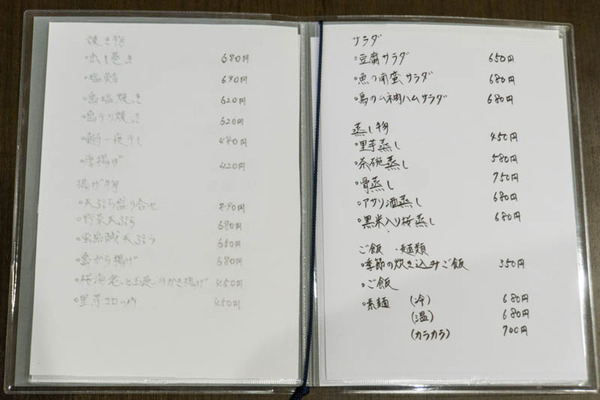 焼き物
・出し巻き 680円
・塩鯖 680円
・鳥塩焼き 620円
・鳥テリ焼き 620円
一夜干し 480円
・唐揚げ 420円
揚げ物
・天ぷら盛り合せ 890円
・野菜天ぷら 680円
天ぷら 680円
・鳥から揚げ 680円
・桜海老と かき揚げ 450円
・里芋コロッケ 450円
サラダ
・豆腐サラダ 650円
・魚の南蛮サラダ 680円
・鳥のハムサラダ 680円
蒸し物
・里芋蒸し 450円
・茶碗蒸し 580円
・骨蒸し 750円
・アサリ酒蒸し 680円
・黒米入り桜蒸し 680円
ご飯・麺類
・季節の炊き込みご飯 350円
・ご飯
・素麺 (冷) 680円
(温) 680円
(カラカラ) 700円